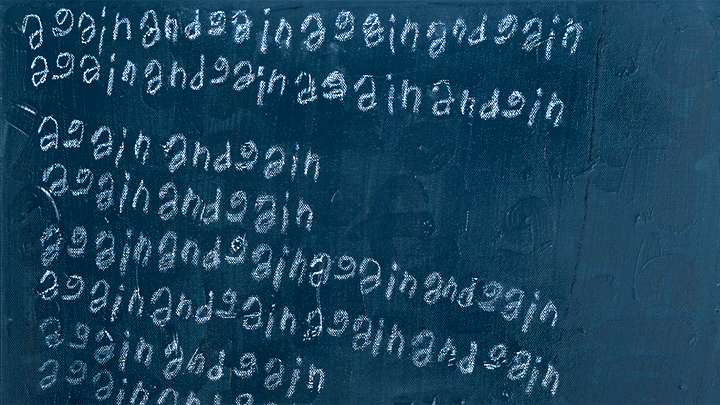 again andgain again andgain
again andgain again andgin
again andgain
again andgain
again andgain again andgain
again andgain again andgain
again andgain
again andgain